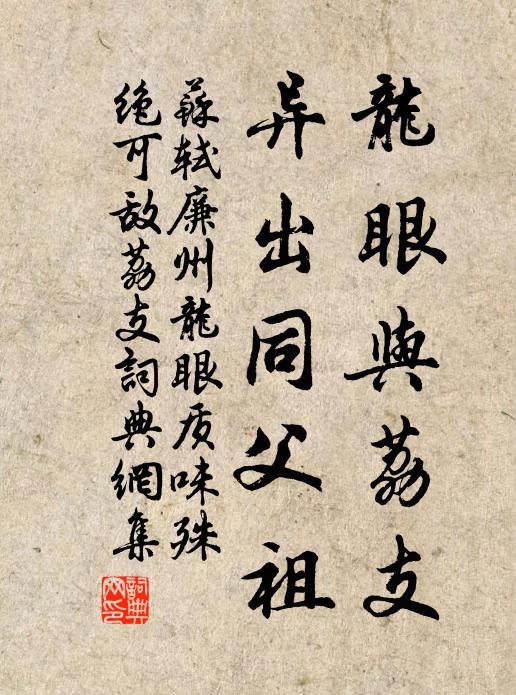 龍眼與荔支
异出同父祖
蘇軾廉州龍眼质味殊
绝可敌荔支詞典網集
詞典
网印